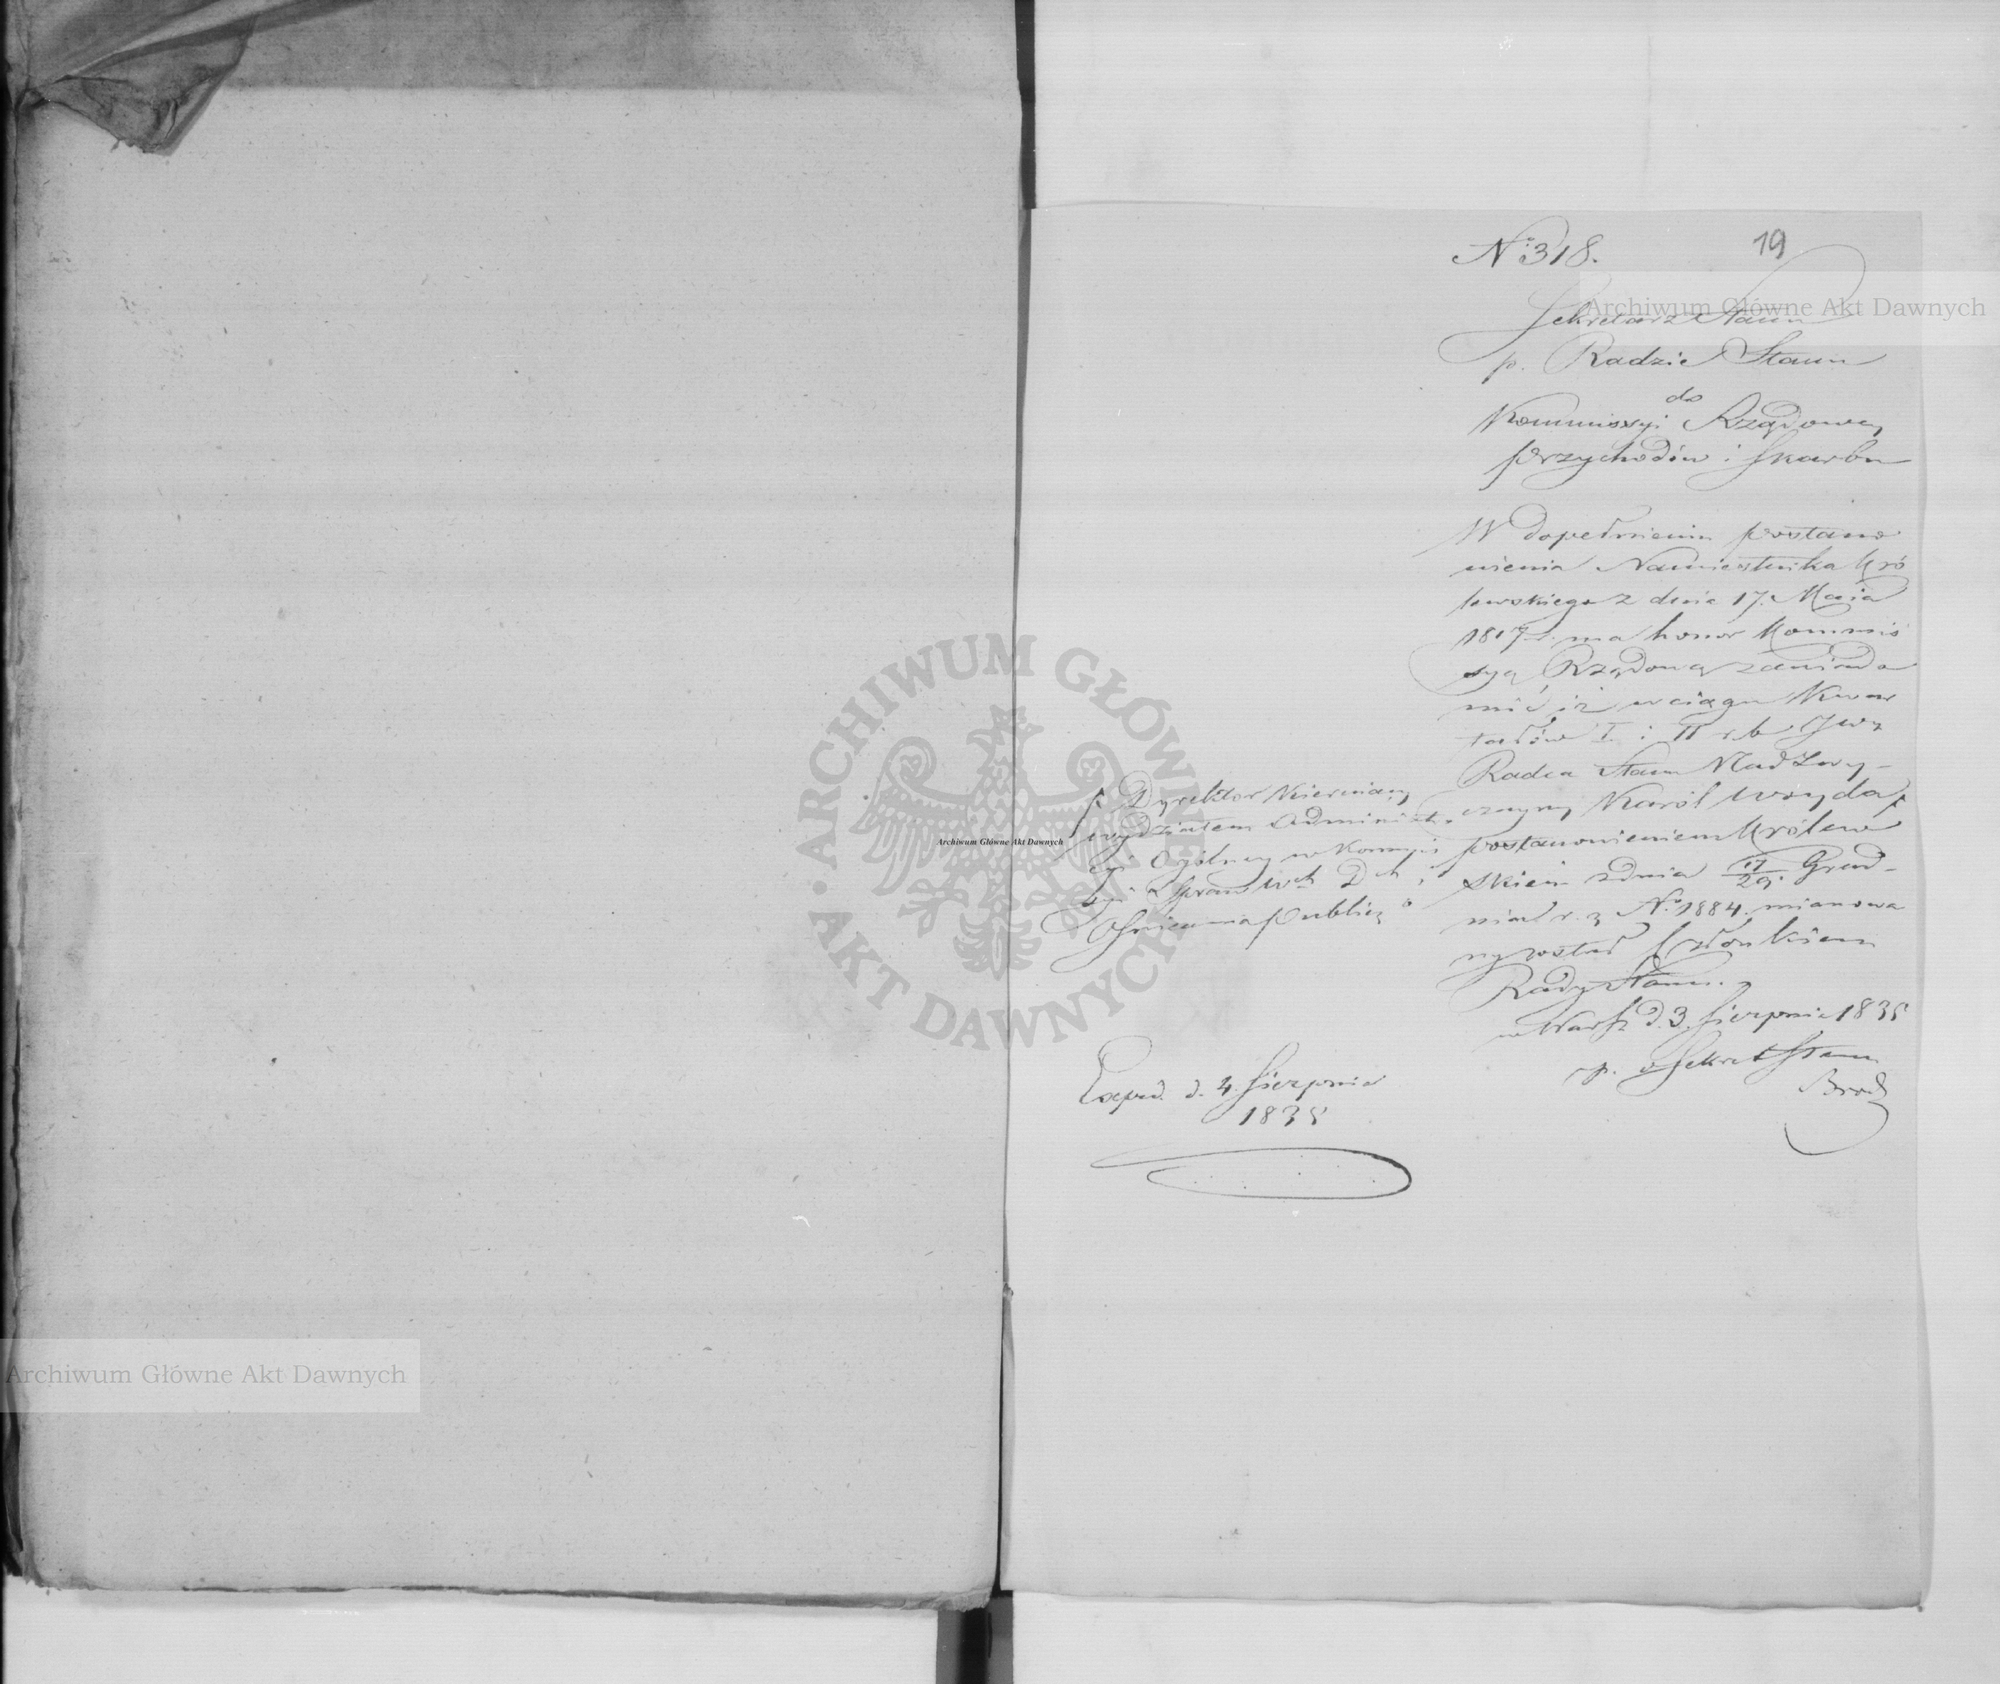 19
N° 318.
Sekretarz Stanu
p. Radzie Stanu
do
Kommissyi Rządowey
Przychodów i Skarbu
W dopełnieniu postano
wienia Namiestnika Kró
lewskiego z dnia 17. Maia
1817 r. ma honor Kommis
syą Rządową zawiado
mić iż w ciągu Kwar
tałów I i II r. b. JW
Radca Stanu Nadzwy-
czayny Karól
postanowieniem Królew
skiem z dnia 17/29. Grud-
nia r. z. N° 1884. mianowa
ny został Członkiem
Rady Stanu.
w Warsz. d. 3 Sierpnia 1835
p. o. Sekret Stanu
Dyrektor Kieruiący
wydziałem Administ.
Ogólney w Kommis
syi Spraw Wch Dch i
Oświecenia Publicz
Exped. d. 4 Sierpnia
1835
Archiwum Główne Akt Dawnych
Archiwum Główne Akt Dawnych
Archiwum Główne Akt Dawnych
ARCHIWUM GŁÓWNE AKT DAWNYCH